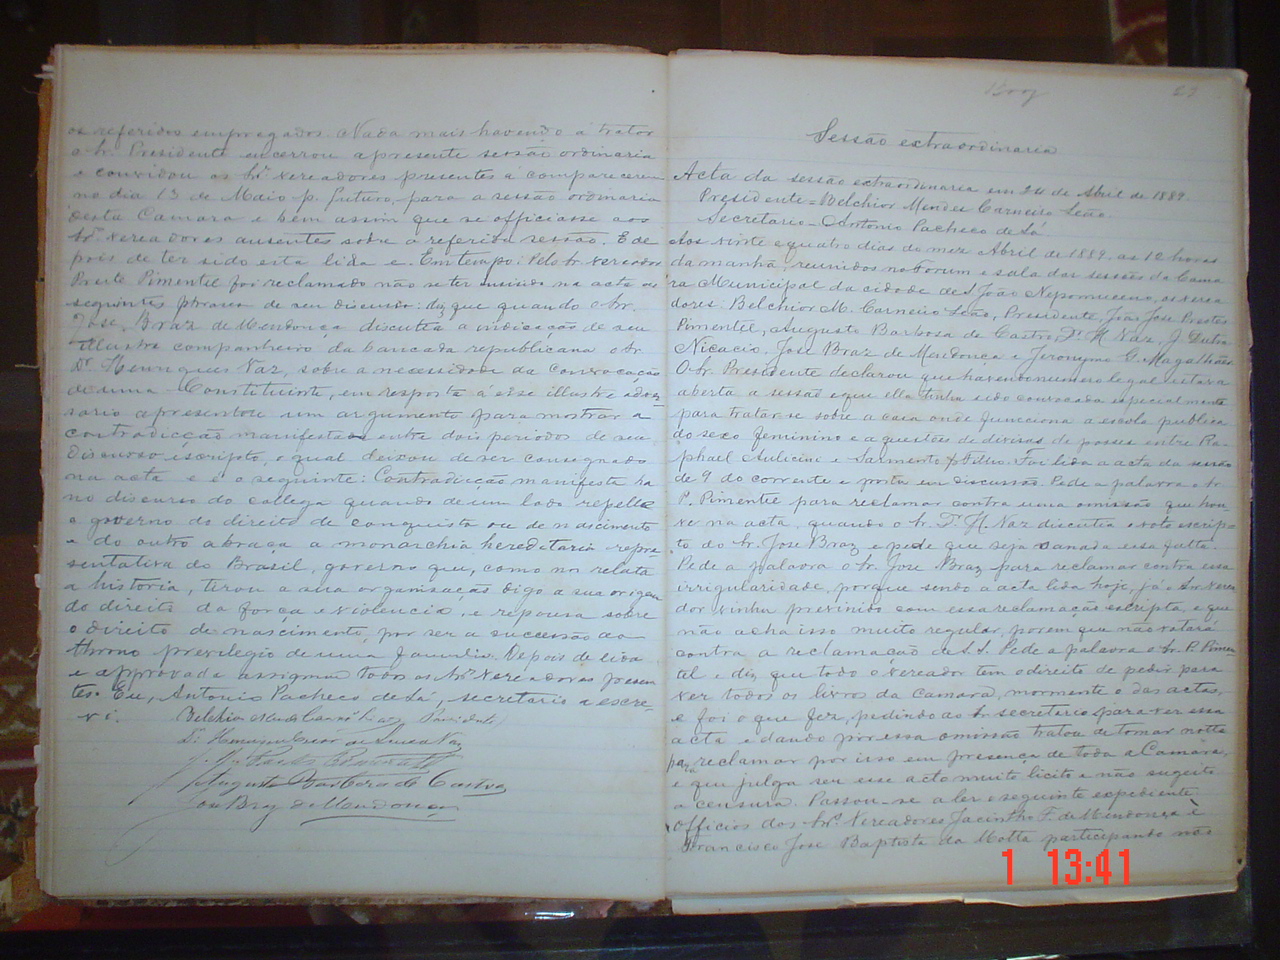 os referidos empregados. Nada mais havendo a tratar
o Sr. Presidente encerrou a presente sessão ordinaria
e convidou os Srs. Vereadores presentes a comparecerem
no dia 13 de Maio p. futuro, para a sessão ordinaria
desta Camara e bem assim que se officiasse aos
Srs. Vereadores ausentes sobre a referida sessão. E de
pois de ter sido esta lida e. Em tempo: Pelo Sr. Vereador
Preste Pimentel foi reclamado não se ter inserido na acta as
seguintes phrases de seu discurso: diz que quando o Sr.
José Braz de Mendonça discutia a indicação de seu
illustre companheiro da bancada republicana o Sr.
Dr. Henrique Vaz, sobre a necessidade da convocação
de uma Constituinte, em resposta á esse illustre adver
sario apresentou um argumento para mostrar a
contradicção manifestada entre dois periodos de seu
discurso escripto, o qual deixou de ser consignado
na acta e é o seguinte: Contradicção manifesta ha
no discurso do collega quando de um lado repelle
o governo do direito de conquista ou de nascimento
e do outro abraça a monarchia hereditaria repre
sentativa do Brasil, governo que, como nos relata
a historia, tirou a sua organisação digo a sua origem
do direito da força e violencia, e repousa sobre
o direito de nascimento, por ser a successão ao
throno previlegio de uma familia. Depois de lida
e approvada assignam todos os Srs. Vereadores presen
tes. Eu, Antonio Pacheco de Sá, secretario a escre-
vi.
Belchior Mendes Carneiro Leão, Presidente
Dr. Henrique Vaz
Augusto Barbosa de Castro
José Braz de Mendonça
Sessão extraordinaria
Acta da sessão extraordinaria em 24 de Abril de 1889.
Presidente = Belchior Mendes Carneiro Leão
Secretario = Antonio Pacheco de Sá
Aos vinte e quatro dias do mez Abril de 1889, as 12 horas
da manhã, reunidos no Forum e sala das sessões da Cama
ra Municipal da cidade de S. João Nepomuceno, os verea
dores: Belchior M. Carneiro Leão, Presidente, João José Prestes
Pimentel, Augusto Barbosa de Castro, Dr. H. Vaz, J. Dutra
Nicacio, José Braz de Mendonça e Jeronymo G. Magalhães.
O Sr. Presidente declarou que havendo numero legal estava
aberta a sessão e que ella tinha sido convocada especialmente
para tratar-se sobre a casa onde funcciona a escola publica
do sexo feminino e a questões de divisas de posses entre Ra-
phael Aulicini e Sarmento & Filho. Foi lida a acta da sessão
de 9 do corrente e posta em discussão. Pede a palavra o Sr.
P. Pimentel para reclamar contra uma omissão que hou
ve na acta, quando o Sr. Dr. H. Vaz discutia o voto escrip-
to do Sr. José Braz, e pede que seja sanada essa falta.
Pede a palavra o Sr. José Braz para reclamar contra essa
irrigularidade, porque sendo a acta lida hoje, já o Sr. Verea
dor vinha previnido com essa reclamação escripta, e que
não acha isso muito regular, porem que não votará
contra a reclamação de S.S. Pede a palavra o Sr. P. Pimen
tel e diz que todo o vereador tem o direito de pedir para
ver todos os livros da Camara, mormente o das actas,
e foi o que fez, pedindo ao Sr. Secretario para ver essa
acta e dando por essa omissão tratou de tomar notta
para reclamar por isso em presença de toda a Camara,
e que julga ser esse acto muito licito e não sugeito
a censura. Passou-se a ler o seguinte expediente:
Officios dos Srs. Vereadores Jacintho F. de Mendonça e
Francisco José Baptista da Motta participando não
1 13:41